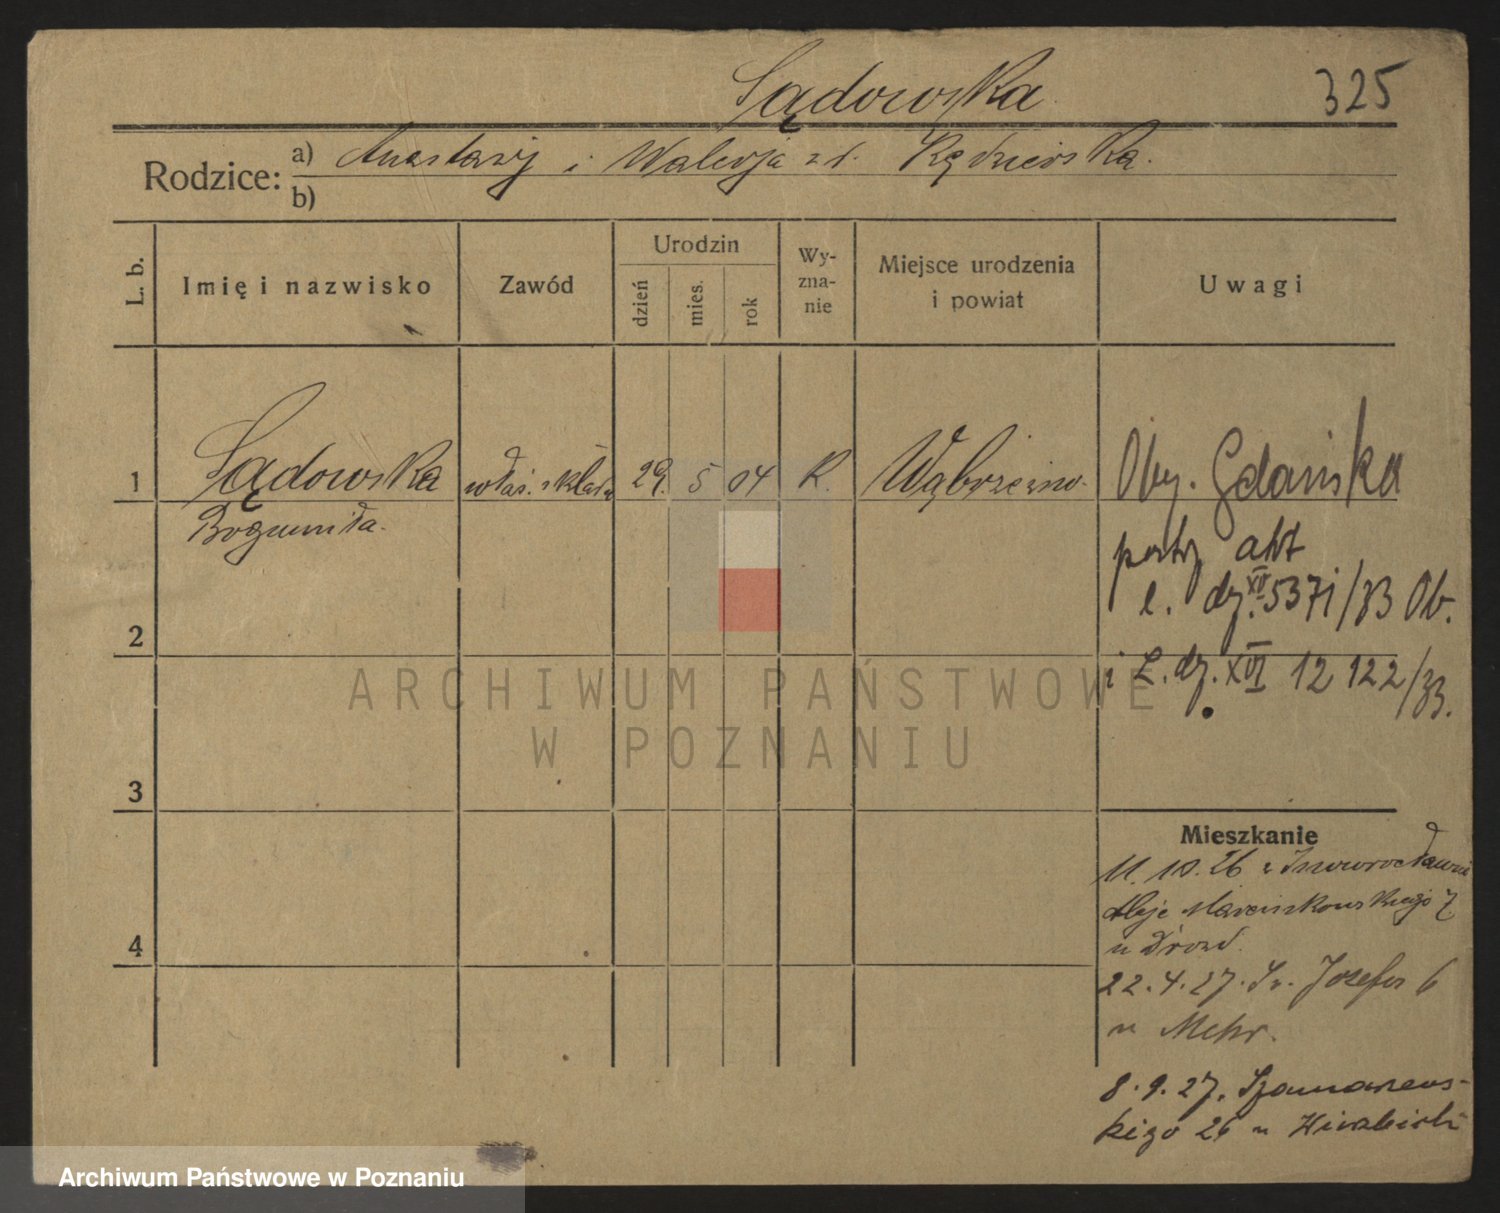 Sądowska
325
Rodzice: a) Anastazy i Walerja zd. Kędzierska.
b)
L. b.
Imię i nazwisko
Zawód
Urodzin
dzień
mies.
rok
Wy-
zna-
nie
Miejsce urodzenia
i powiat
Uwagi
1 Sądowska właś. składu 29. 5 04 K. Wąbrzeźno. Oby. Gdańska
Bogumiła.
patrz akt
l. dz. XVI 5371/33 Ob.
2
i L. dz. XVI 12 122/33.
ARCHIWUM PAŃSTWOWE
W POZNANIU
3
Mieszkanie
11. 10. 26 z Inowrocławia
Aleje Marcinkowskiego 7
u Drozd.
4
22. 4. 27. Św. Józefa 6
u Mehr.
8. 9. 27. Szamarzews-
kiego 26 u
Archiwum Państwowe w Poznaniu